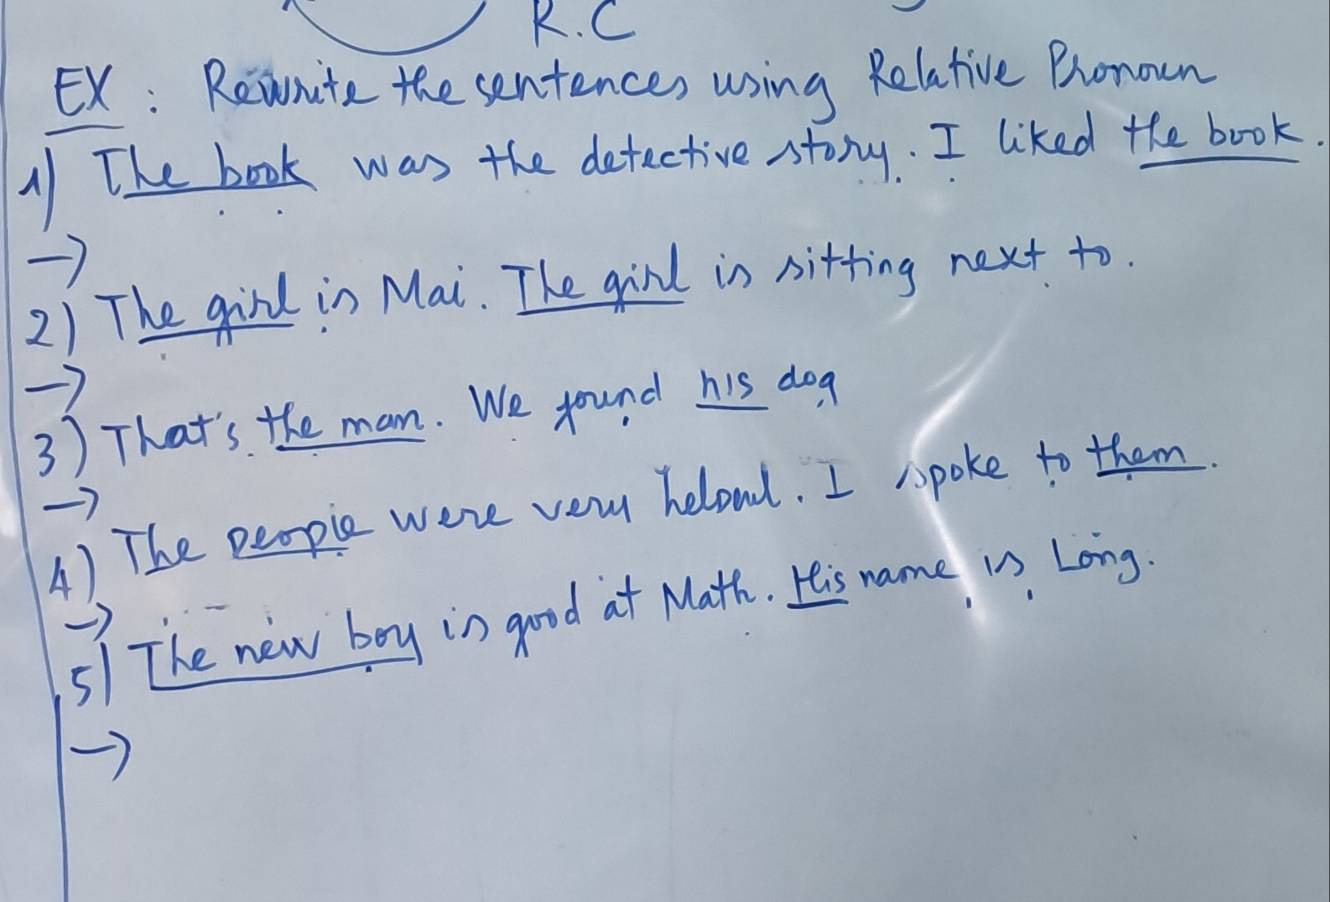 R.C
EX : Rewrite the sentences using Relative Pronoun
1) The book was the detective story. I liked the book.
→
2) The girl is Mai. The girl is sitting next to.
→
3) That's the man. We found his dog
→
4) The people were very . I spoke to them.
→
5) The new boy is good at Math. His name is Long.
→